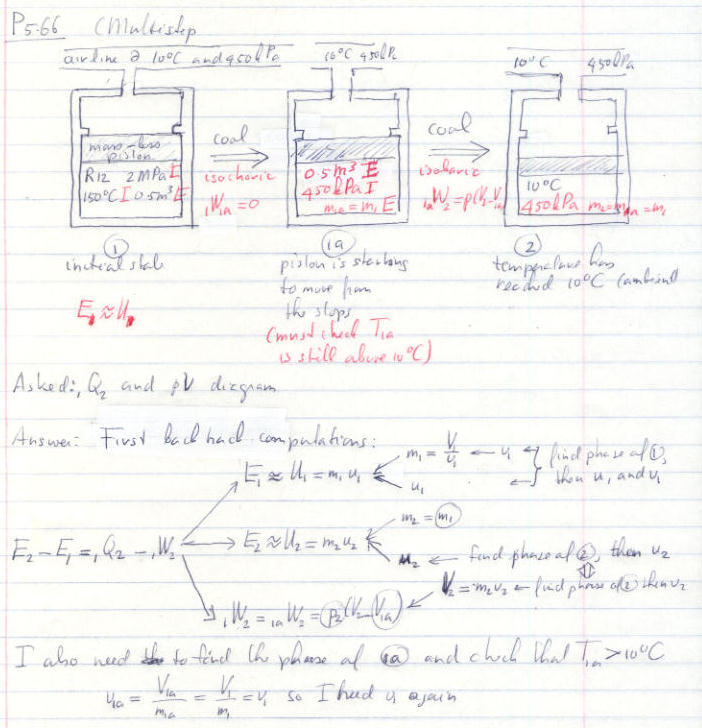 P5.66 (Multistep
airline @ 10°C and 450kPa
10°C 450kPa
10°C 450kPa
mass-less
piston
R12 2MPa I
150°C I 0.5m³ E
cool
isochoric
₁W₁ₐ=0
0.5m³ E
450kPa I
m₁ₐ=m₁ E
cool
isobaric
₁ₐW₂=p(V₂-V₁ₐ)
10°C
450kPa m₂=m₁ₐ=m₁
1
initial state
E₁≈U₁
1a
piston is starting
to move from
the stops
(must check T₁ₐ
is still above 10°C)
2
temperature has
reached 10°C (ambient
Asked: ₁Q₂ and pV diagram
Answer: First back hack computations:
E₁ ≈ U₁ = m₁u₁
m₁ = V/v₁ ← v₁
u₁
find phase of ①,
then v₁ and u₁
E₂-E₁ = ₁Q₂ - ₁W₂
E₂ ≈ U₂ = m₂u₂
m₂ = m₁
u₂ ← find phase of ②, then u₂
V₂ = m₂v₂ ← find phase of ② then v₂
₁W₂ = ₁ₐW₂ = p₂(V₂-V₁ₐ)
I also need to find the phase of 1a and check that T₁ₐ>10°C
v₁ₐ = V₁ₐ/m₁ₐ = V₁/m₁ = v₁ so I need v₁ again